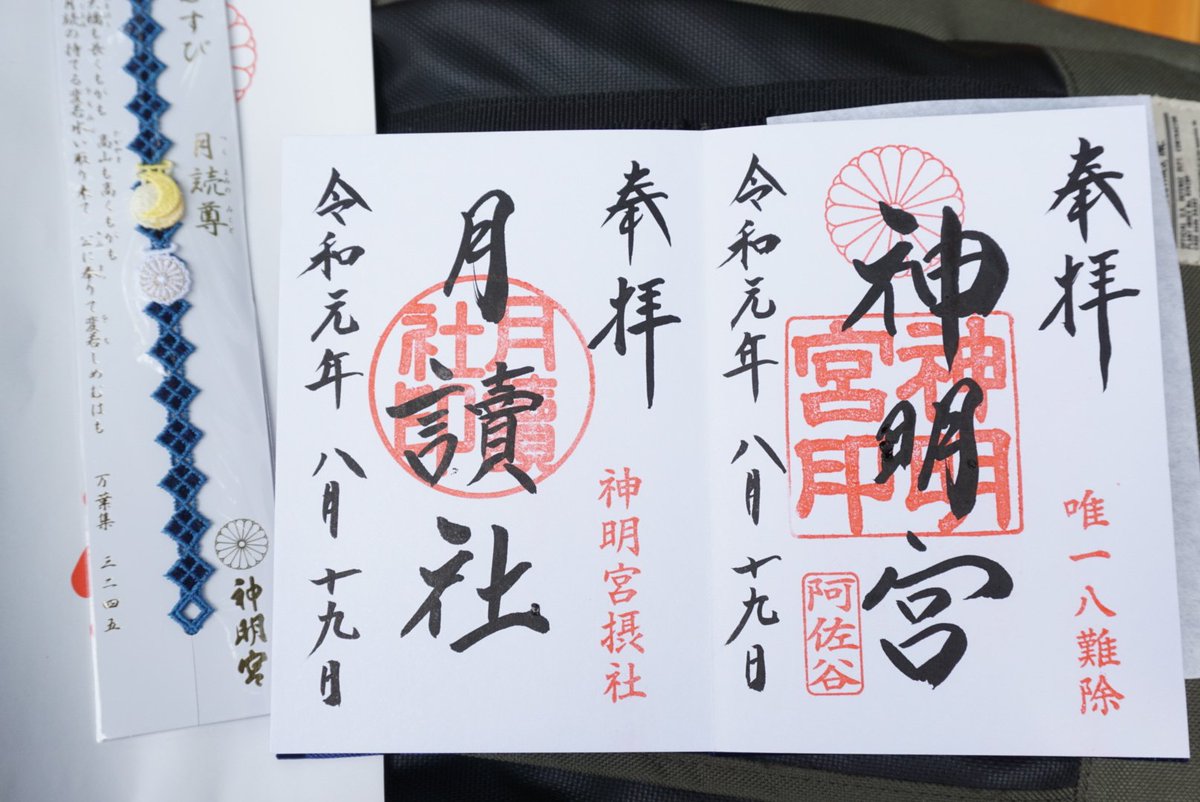 奉拝
唯一八難除
神明宮
神明宮印
阿佐谷
令和元年 八月 十九日
奉拝
神明宮摂社
月讀社
月讀社印
令和元年 八月 十九日
すび
月読尊
橋も長くもがも 高山も高くもがも
月読の持てる変若水い取り来て 公に奉りて変若しめむはも
万葉集 三二四五
神明宮